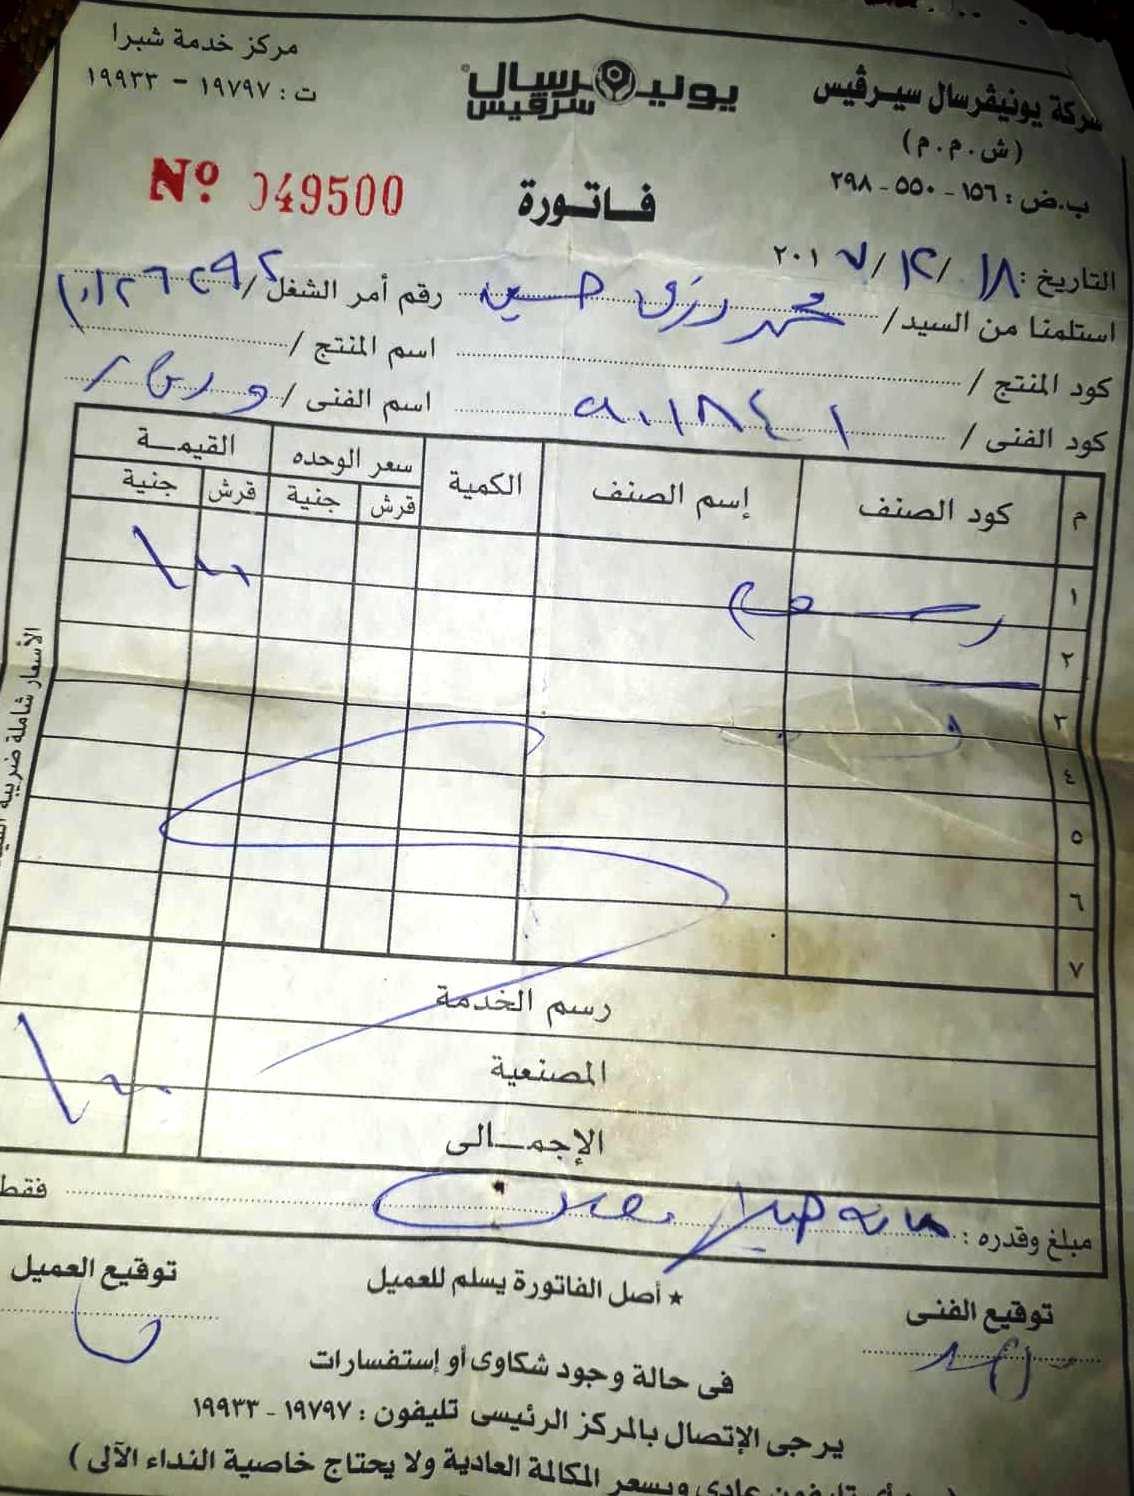 مركز خدمة شبرا
ت : ١٩٧٩٧ - ١٩٩٣٣
يونيڤرسال سرڤيس
شركة يونيڤرسال سيرڤيس
(ش.م.م)
ب.ض : ١٥٦ - ٥٥٠ - ٢٩٨
Nº 049500
فاتورة
التاريخ : ١٨ / ١٢ / ٢٠١٧
استلمنا من السيد / محمد رزق حسين رقم أمر الشغل /
كود المنتج / اسم المنتج /
كود الفنى / اسم الفنى /
م كود الصنف إسم الصنف الكمية سعر الوحده القيمة
قرش جنية قرش جنية
١ ١٠٠
٢
٣
٤
٥
٦
٧
رسم الخدمة
المصنعية
الإجمالى ١٠٠
مبلغ وقدره : مائة جنيه فقط
الأسعار شاملة ضريبة
توقيع الفنى
★ أصل الفاتورة يسلم للعميل
توقيع العميل
فى حالة وجود شكاوى أو إستفسارات
يرجى الإتصال بالمركز الرئيسى تليفون : ١٩٧٩٧ - ١٩٩٣٣
أى تليفون عادى وبسعر المكالمة العادية ولا يحتاج خاصية النداء الآلى )